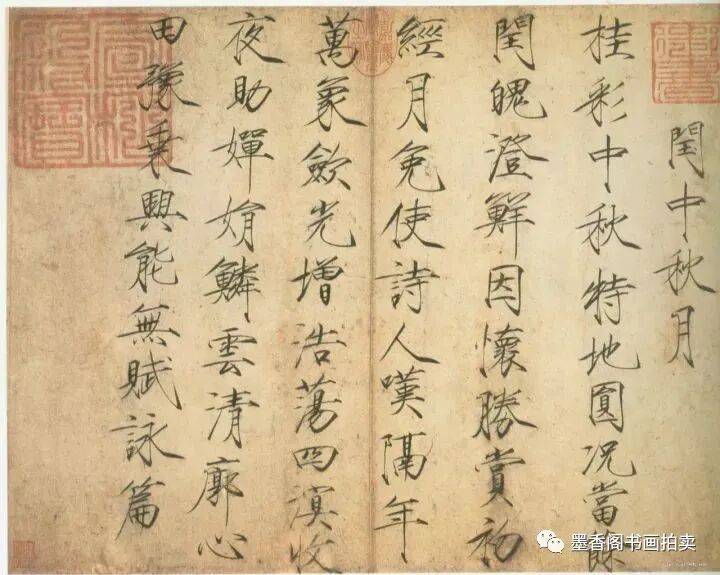 閏中秋月
桂彩中秋特地圓況當餘
閏魄澄鮮因懷勝賞初
經月免使詩人嘆隔年
萬象歛光增浩蕩四溟收
夜助嬋娟鱗雲清廓心
田豫乘興能無賦詠篇
墨香阁书画拍卖